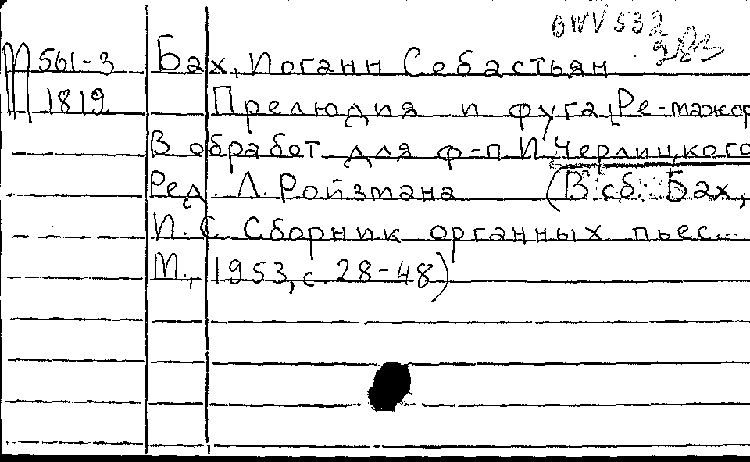 BWV 532
М 561-3 Бах, Иоганн Себастьян
1819 Прелюдия и фуга, Ре-мажор
В обработ. для ф-п И. Черлицкого
Ред. Л. Ройзмана (В сб: Бах,
И. С. Сборник органных пьес...
М., 1953, с. 28-48)